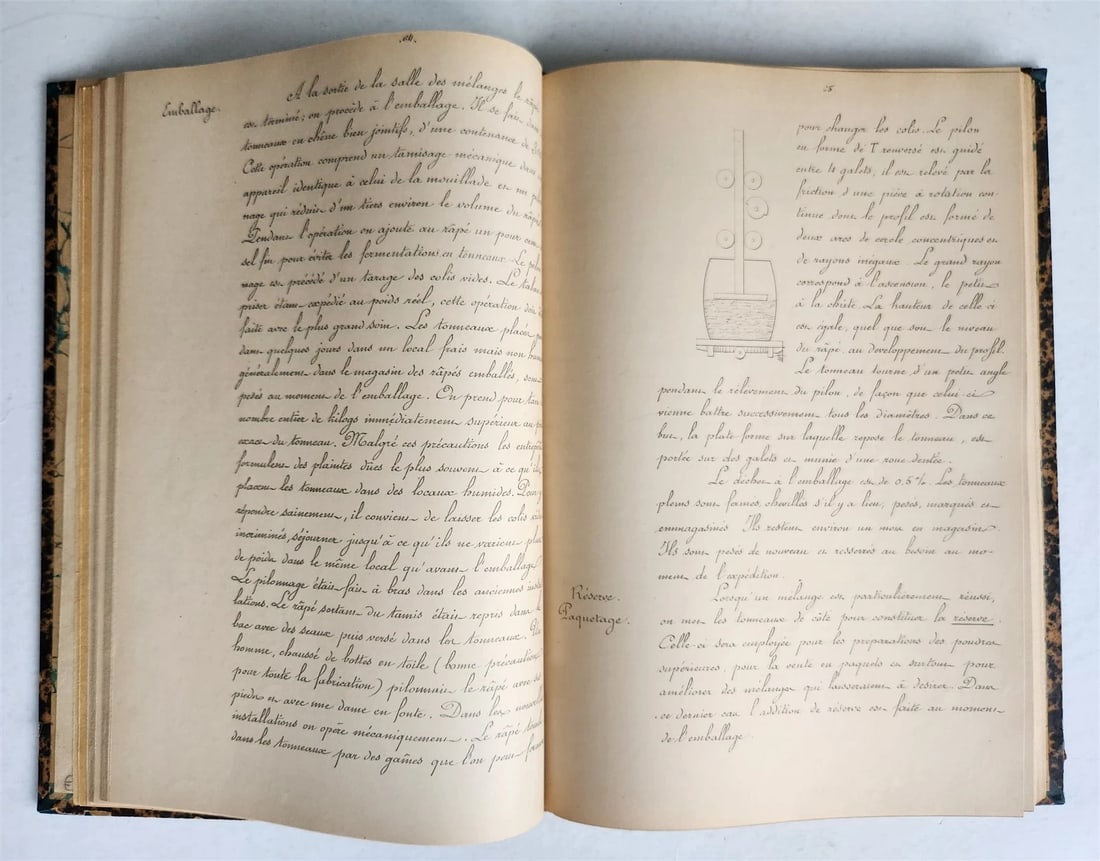 Emballage.
A la sortie de la salle des mélanges le râpé
est terminé; on procède à l'emballage. Il se fait dans
tonneaux en chêne bien jointifs, d'une contenance de
Cette opération comprend un tamisage mécanique dans
appareil identique à celui de la mouillade et un
nage qui réduit d'un tiers environ le volume du râpé
Pendant l'opération on ajoute au râpé un pour
sel fin pour éviter les fermentations en tonneaux. Le
nage est précédé d'un tarage des colis vides. Le
priser étant expédié au poids réel, cette opération doit
faite avec le plus grand soin. Les tonneaux placés
dans quelques jours dans un local frais mais non
généralement dans le magasin des râpés emballés, sont
pesés au moment de l'emballage. On prend pour
nombre entier de kilogs immédiatement supérieur au
exact du tonneau. Malgré ces précautions les
formulent des plaintes dûes le plus souvent à ce qu'ils
placent les tonneaux dans des locaux humides. Pour
répondre sainement, il convient de laisser les colis
incriminés, séjourner jusqu'à ce qu'ils ne varient plus
de poids dans le même local qu'avant l'emballage
Le pilonnage était fait à bras dans les anciennes
lations. Le râpé sortant du tamis était repris dans
bac avec des seaux puis versé dans les tonneaux. Un
homme, chaussé de bottes en toile (bonne précaution
pour toute la fabrication) pilonnait le râpé avec
pieds et avec une dame en fonte. Dans les nouvelles
installations on opère mécaniquement. Le râpé
dans les tonneaux par des gaînes que l'on peut
pour changer les colis. Le pilon
en forme de T renversé est guidé
entre 4 galets, il est relevé par la
friction d'une pièce à rotation con-
tinue dont le profil est formé de
deux arcs de cercle concentriques et
de rayons inégaux. Le grand rayon
correspond à l'ascension, le petit
à la chûte. La hauteur de celle ci
est égale, quel que soit le niveau
du râpé, au developpement du profil.
Le tonneau tourne d'un petit angle
pendant le relèvement du pilon, de façon que celui-ci
vienne battre successivement tous les diamètres. Dans ce
but, la plate-forme sur laquelle repose le tonneau, est
portée sur des galets et munie d'une roue dentée.
Le déchet à l'emballage est de 0,5 %. Les tonneaux
pleins sont fermés, chevillés s'il y a lieu, pesés, marqués et
emmagasinés. Ils restent environ un mois en magasin.
Ils sont pesés de nouveau et resserrés au besoin au mo-
ment de l'expédition.
Réserve.
Paquetage.
Lorsqu'un mélange est particulièrement réussi,
on met les tonneaux de côté pour constituer la réserve.
Celle-ci sera employée pour les préparations des poudres
supérieures, pour la vente en paquets et surtout pour
améliorer des mélanges qui laisseraient à désirer. Dans
ce dernier cas l'addition de réserve est faite au moment
de l'emballage.